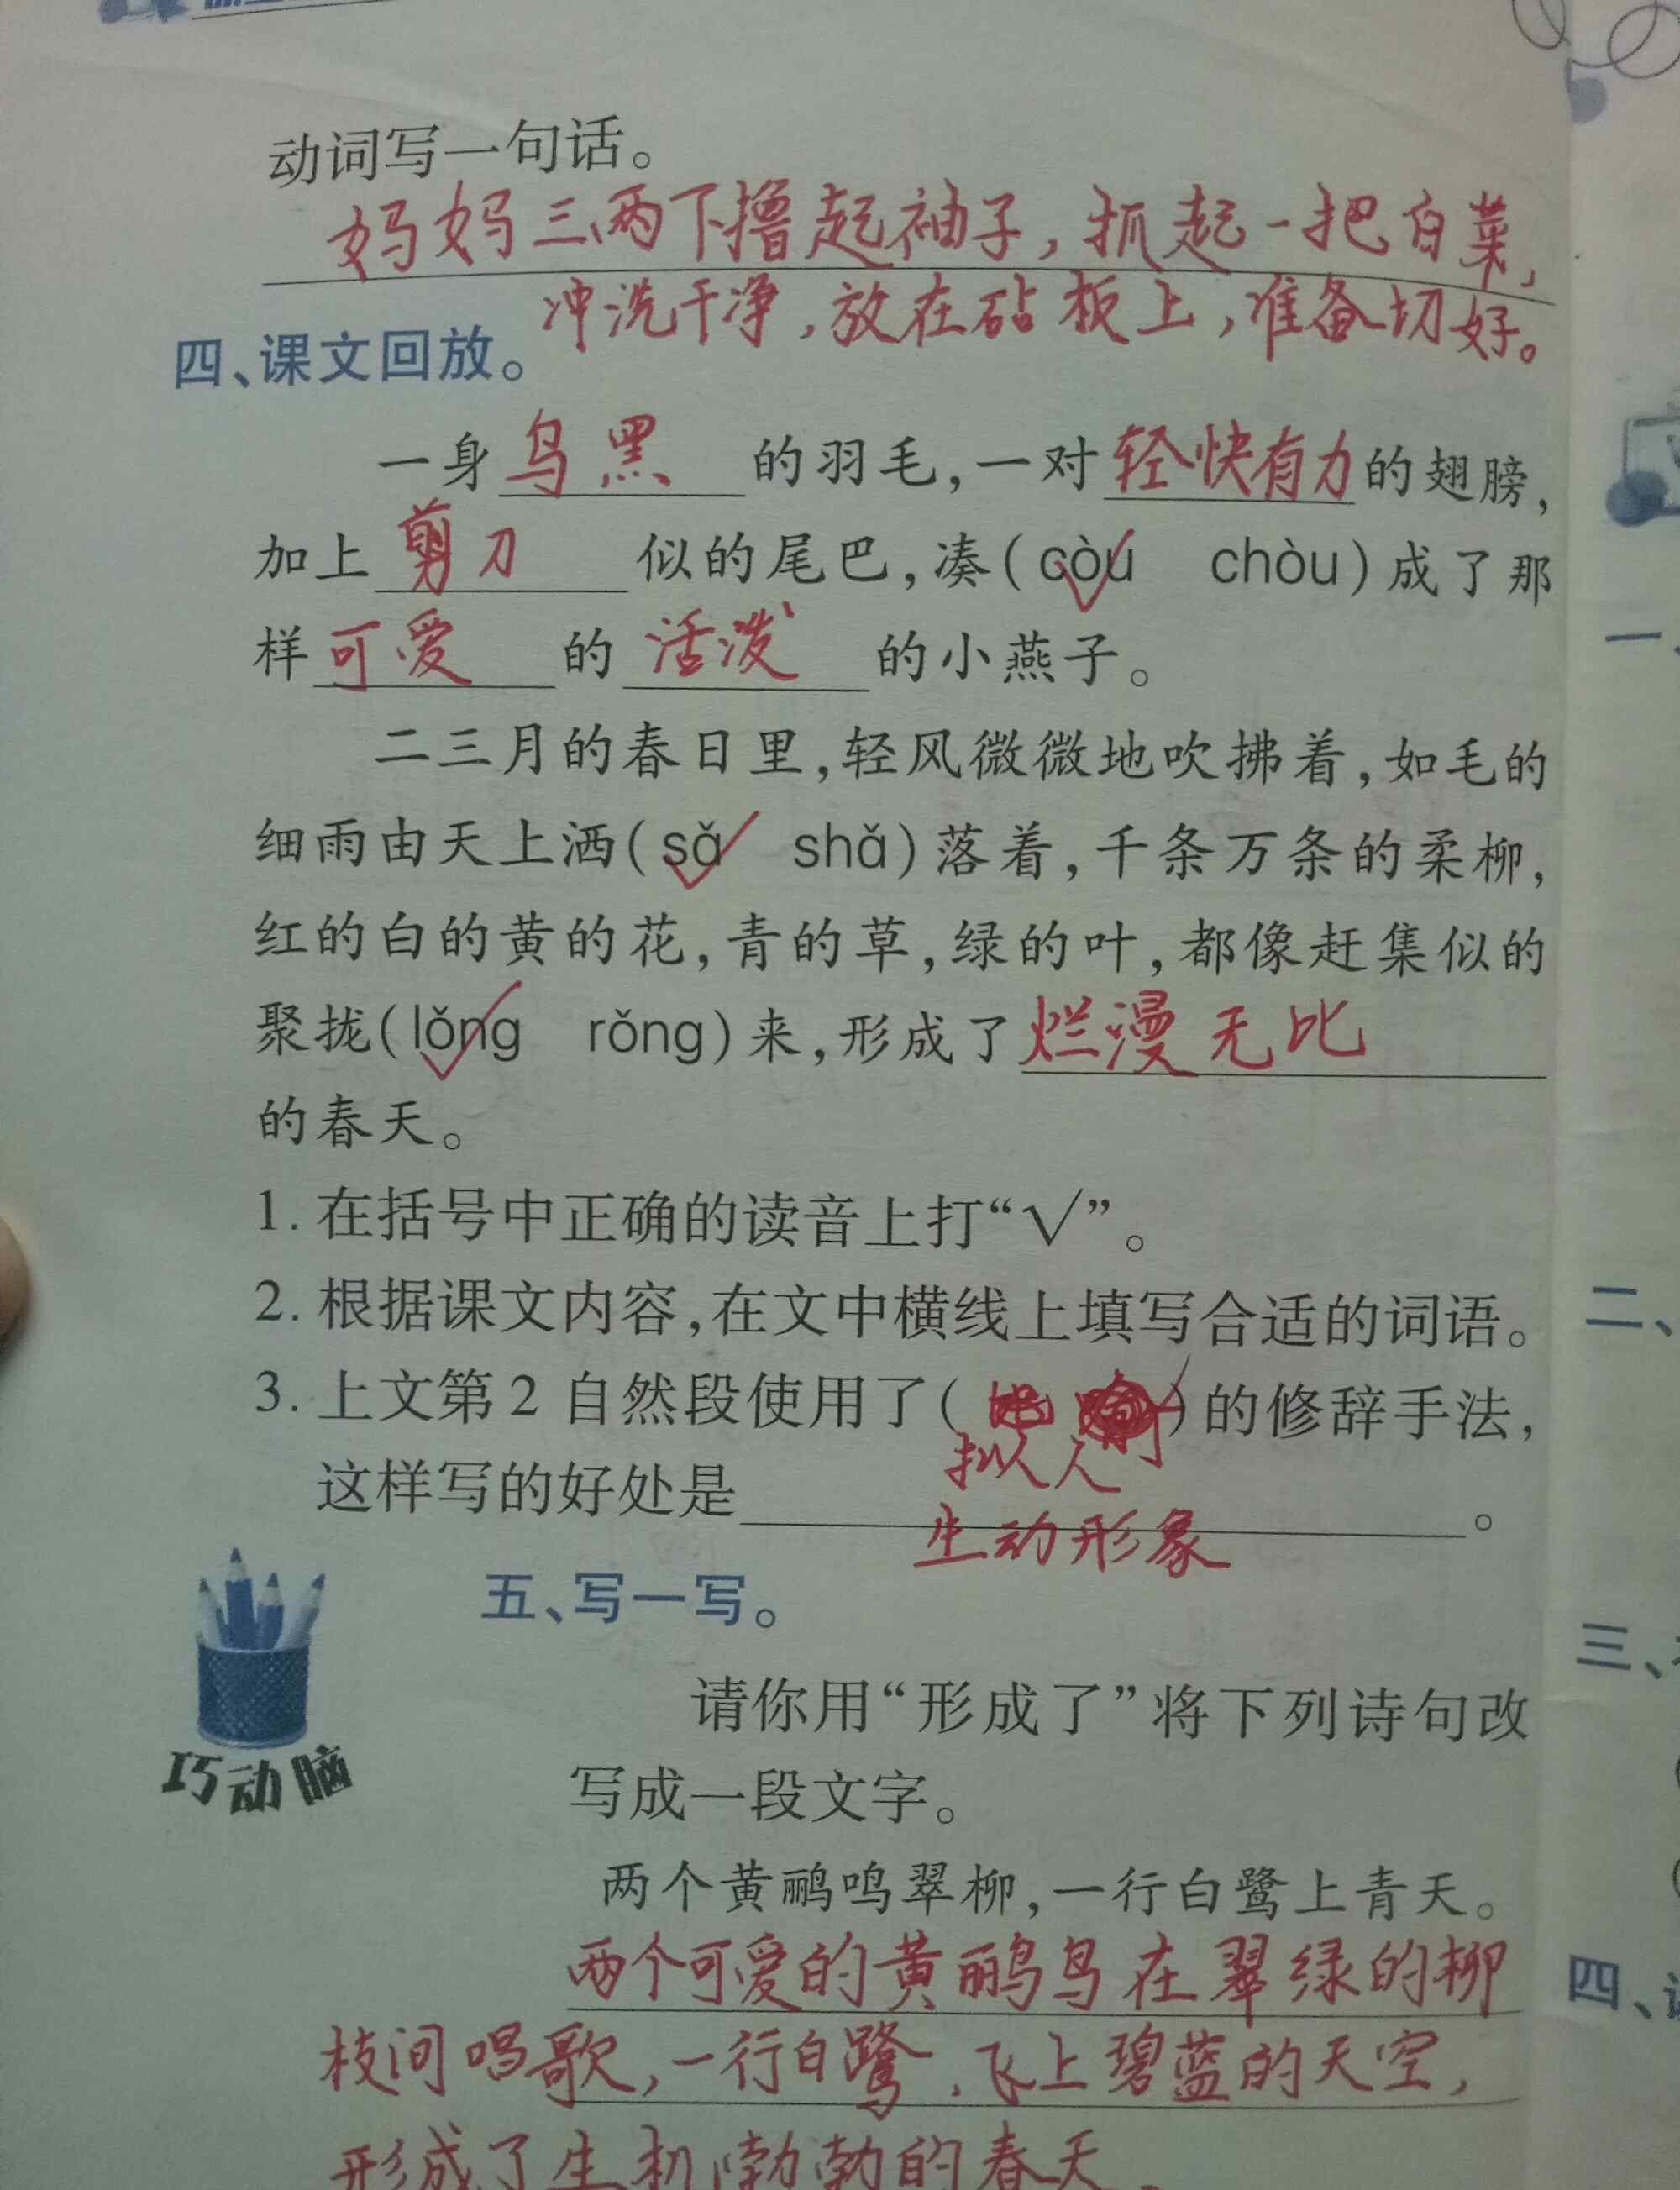 动词写一句话。
妈妈三两下撸起袖子,抓起一把白菜,
冲洗干净,放在砧板上,准备切好。
四、课文回放。
一身乌黑的羽毛,一对轻快有力的翅膀,
加上剪刀似的尾巴,凑(còu chòu)成了那
样可爱的活泼的小燕子。
二三月的春日里,轻风微微地吹拂着,如毛的
细雨由天上洒(sǎ shǎ)落着,千条万条的柔柳,
红的白的黄的花,青的草,绿的叶,都像赶集似的
聚拢(lǒng rǒng)来,形成了烂漫无比
的春天。
1. 在括号中正确的读音上打“√”。
2. 根据课文内容,在文中横线上填写合适的词语。
3. 上文第2自然段使用了( )的修辞手法,
拟人
这样写的好处是 。
生动形象
五、写一写。
请你用“形成了”将下列诗句改
巧动脑
写成一段文字。
两个黄鹂鸣翠柳,一行白鹭上青天。
两个可爱的黄鹂鸟在翠绿的柳
枝间唱歌,一行白鹭,飞上碧蓝的天空,
形成了生机勃勃的春天。
一、
二、
三、
四、